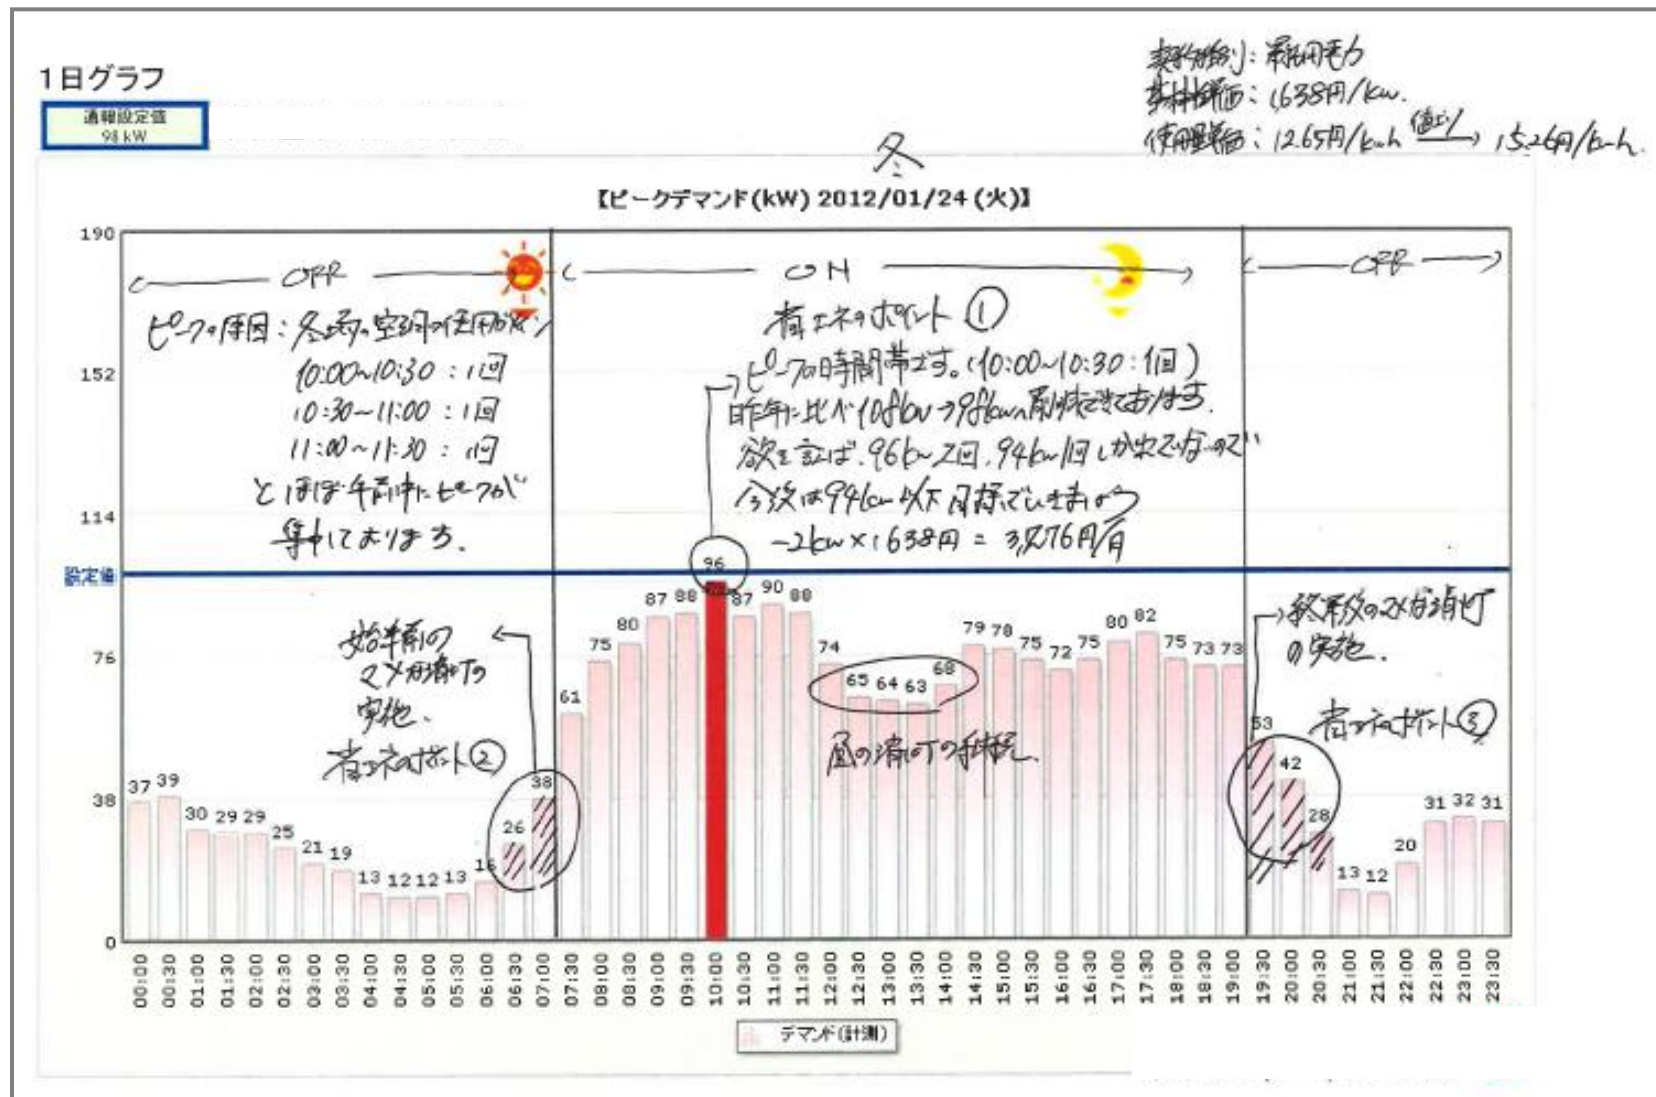 1日グラフ
通報設定値
98 kW
契約種別：業務用電力
基本単価：1,638円/kw.
使用量単価：12.65円/kwh 値上り→ 15.26円/kwh.
冬
【ピークデマンド(kW) 2012/01/24 (火)】
190
152
114
設定値
76
38
0
OFF
ON
OFF
ピークの原因：冬場の空調の使用が
10:00~10:30：1回
10:30~11:00：1回
11:00~11:30：1回
とほぼ午前中にピークが
集中しております.
省エネのポイント ①
ピークの時間帯です。(10:00~10:30：1回)
昨年に比べ108kw→98kwへ削減できております.
欲を言えば、96kw 2回、94kw 1回しか出てないので
今後は94kw以下目標でいきましょう
-2kw×1638円 = 3,276円/月
始業前の
マメな消灯の
実施.
省エネのポイント②
昼の消灯の手摺.
終業後のマメな消灯
の実施.
省エネのポイント③
37 39 30 29 29 25 21 19 13 12 12 13 16 26 38 61 75 80 87 88 96 87 90 88 74 65 64 63 68 79 78 75 72 75 80 82 75 73 73 53 42 28 13 12 20 31 32 31
00:00 00:30 01:00 01:30 02:00 02:30 03:00 03:30 04:00 04:30 05:00 05:30 06:00 06:30 07:00 07:30 08:00 08:30 09:00 09:30 10:00 10:30 11:00 11:30 12:00 12:30 13:00 13:30 14:00 14:30 15:00 15:30 16:00 16:30 17:00 17:30 18:00 18:30 19:00 19:30 20:00 20:30 21:00 21:30 22:00 22:30 23:00 23:30
デマンド(計測)